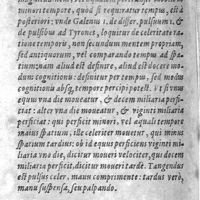 minori tempore, quod si requiratur tempus, est à
posteriori: vnde Galenus 1. de differ. pulsuum 1. &
de pulsibus ad Tyrones, loquitur de celeritate ra-
tione temporis, non secundum mentem propriam,
sed antiquorum, vel comparando tempus ad spa-
tium: nam aliud est definire, aliud est docere mo-
dum cognitionis: definitur per tempus, sed motus
cognitionis absq; tempore percipi potest. si vnus
equus vna die moueatur, & decem miliaria perfi-
ciat: alter vna die moueatur, & viginti miliaria
perficiat: qui perficit minori, vel aequali tempore
maius spatium, ille celeriter mouetur, qui minus
spatium tardius: ob id equus perficiens viginti mi-
liaria vno die, dicitur moueri velociter, qui decem
miliaria perficit, dicitur moueri tardè. Tangendus
est pulsus celer, manu comprimente: tardus verò,
manu suspensa, seu palpando.